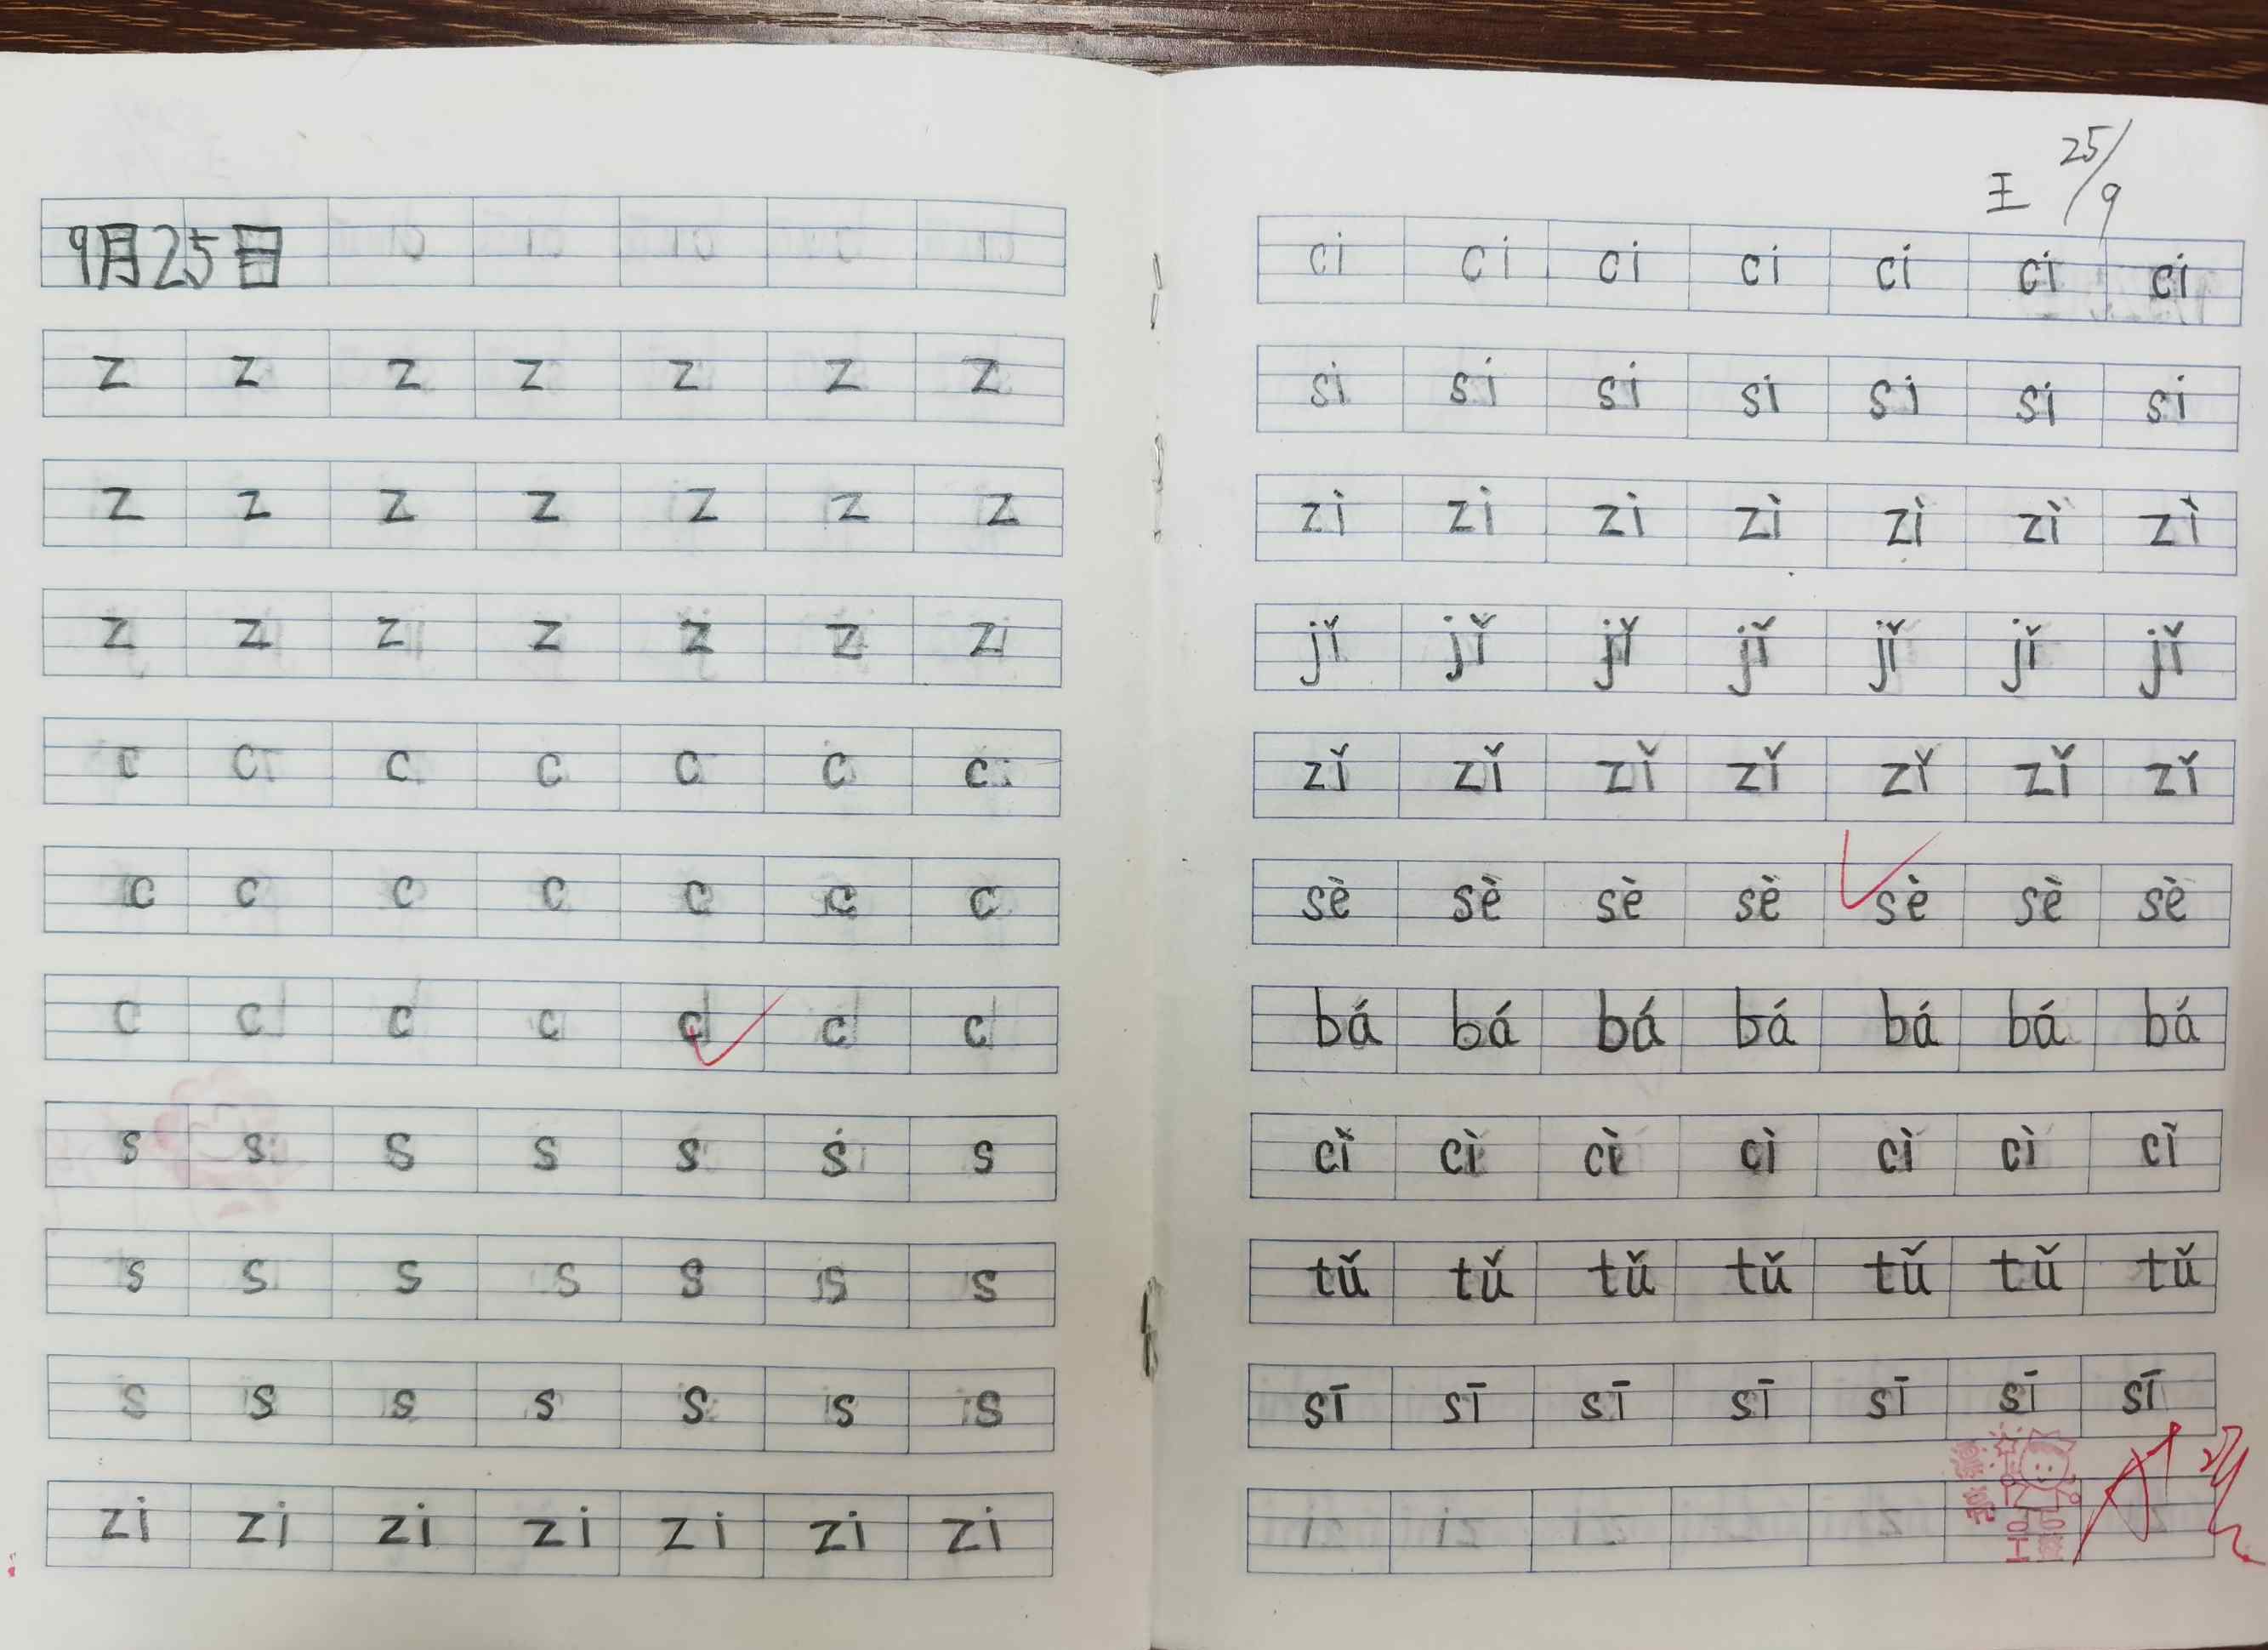 9月25日
z z z z z z z
z z z z z z z
z z z z z z z
c c c c c c c
c c c c c c c
c c c c c c c
s s s s s s s
s s s s s s s
s s s s s s s
zi zi zi zi zi zi zi
王 25/9
ci ci ci ci ci ci ci
si si si si si si si
zì zì zì zì zì zì zì
jǐ jǐ jǐ jǐ jǐ jǐ jǐ
zǐ zǐ zǐ zǐ zǐ zǐ zǐ
sè sè sè sè sè sè sè
bá bá bá bá bá bá bá
cǐ cì cì cì cì cì cǐ
tǔ tǔ tǔ tǔ tǔ tǔ tǔ
sī sī sī sī sī sī sī